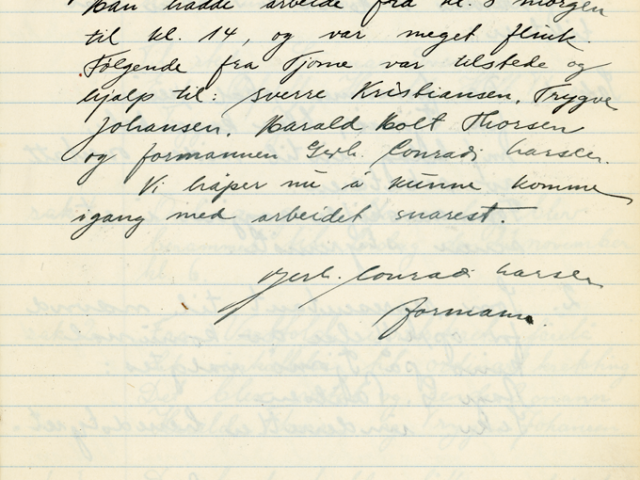 Han hadde arbeide fra kl. 5 morgen
til kl. 14, og var meget flink.
Følgende fra Tjøme var tilstede og
hjalp til: Sverre Kristiansen, Trygve
Johansen, Harald Holt Thorsen
og formannen Gerh. Conradi Larsen.
Vi håper nu å kunne komme
igang med arbeidet snarest.
Gerh. Conradi Larsen
formann.